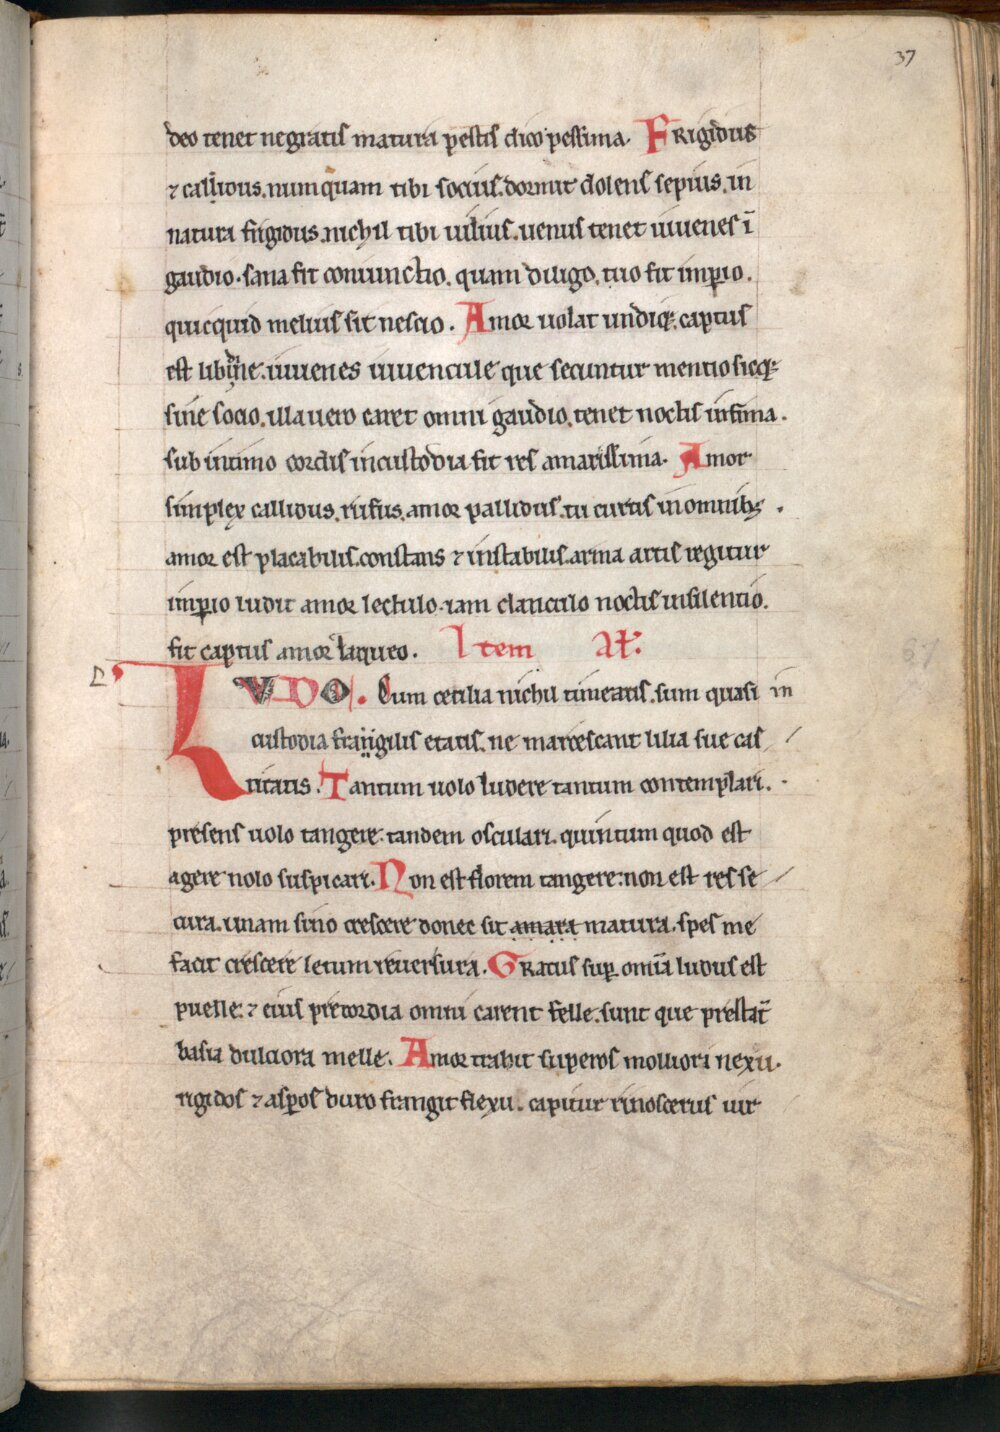 37
deo tenet negratis matura pestis dico pessima. Frigidus
⁊ callidus. numquam tibi socius. dormit dolens sepius. in
natura frigidus. nichil tibi uilius. uenus tenet iuuenes ī
gaudio. sana fit coniunctio. quam diligo. tuo fit imꝑio.
quicquid melius sit nescio. Amor uolat undiqꝫ. captus
est libidine. iuuenes iuuencule que secuntur mentio siccqꝫ
sine socio. illa uero caret omni gaudio. tenet noctis infima.
sub intimo cordis in custodia fit res amarissima. Amor
simplex callidus. rufus. amor pallidus. tu curtis in omnibꝫ.
amor est placabilis. constans ⁊ instabilis. arma artis regitur
imꝑio ludit amor lectulo. iam clanculo noctis in silentio.
fit captus amor laqueo. Item Aƚ.
LVDO. Cum cecilia nichil timeatis. sum quasi in
custodia fragilis etatis. ne marcescant lilia sue cas
titatis. Tantum uolo ludere tantum contemplari.
presens uolo tangere. tandem osculari. quintum quod est
agere nolo suspicari. Non est florem tangere. non est res se
cura. unam sino crescere donec sit amara matura. spes me
facit crescere letum reuersura. Gratus suꝑ omīa ludus est
puelle. ⁊ eius precordia omni carent felle. sunt que prestat̄
basia dulciora melle. Amor trahit superos molliori nexu.
rigidos ⁊ asꝑos duro frangit flexu. capitur rinoscerus uir